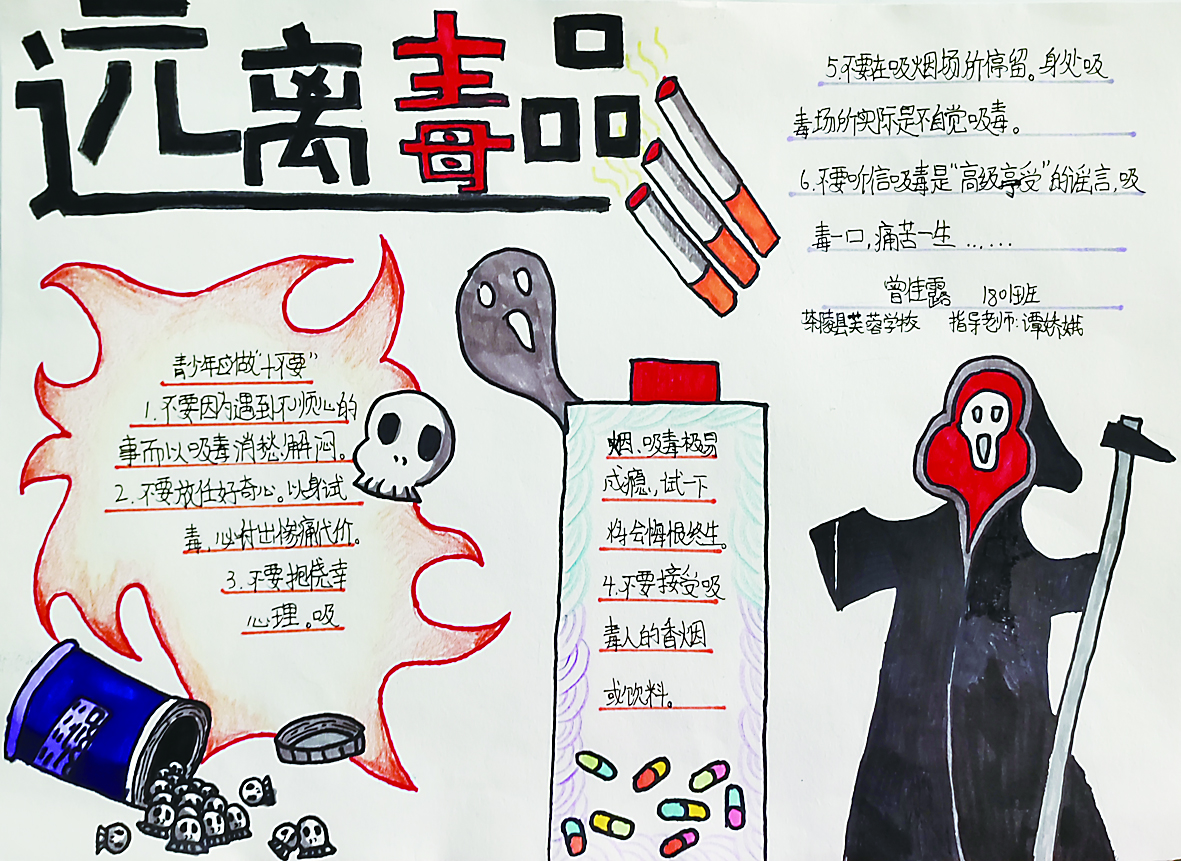 远离毒品
青少年应做“十不要”
1.不要因为遇到不顺心的
事而以吸毒消愁解闷。
2.不要放任好奇心。以身试
毒,必付出惨痛代价。
3.不要抱侥幸
心理。吸
烟、吸毒极易
成瘾,试一下
将会悔恨终生。
4.不要接受吸
毒人的香烟
或饮料。
5.不要在吸烟场所停留。身处吸
毒场所实际是不自觉吸毒。
6.不要听信吸毒是“高级享受”的谣言,吸
毒一口,痛苦一生……
曾佳露 1801班
茶陵县芙蓉学校 指导老师:谭娇娥